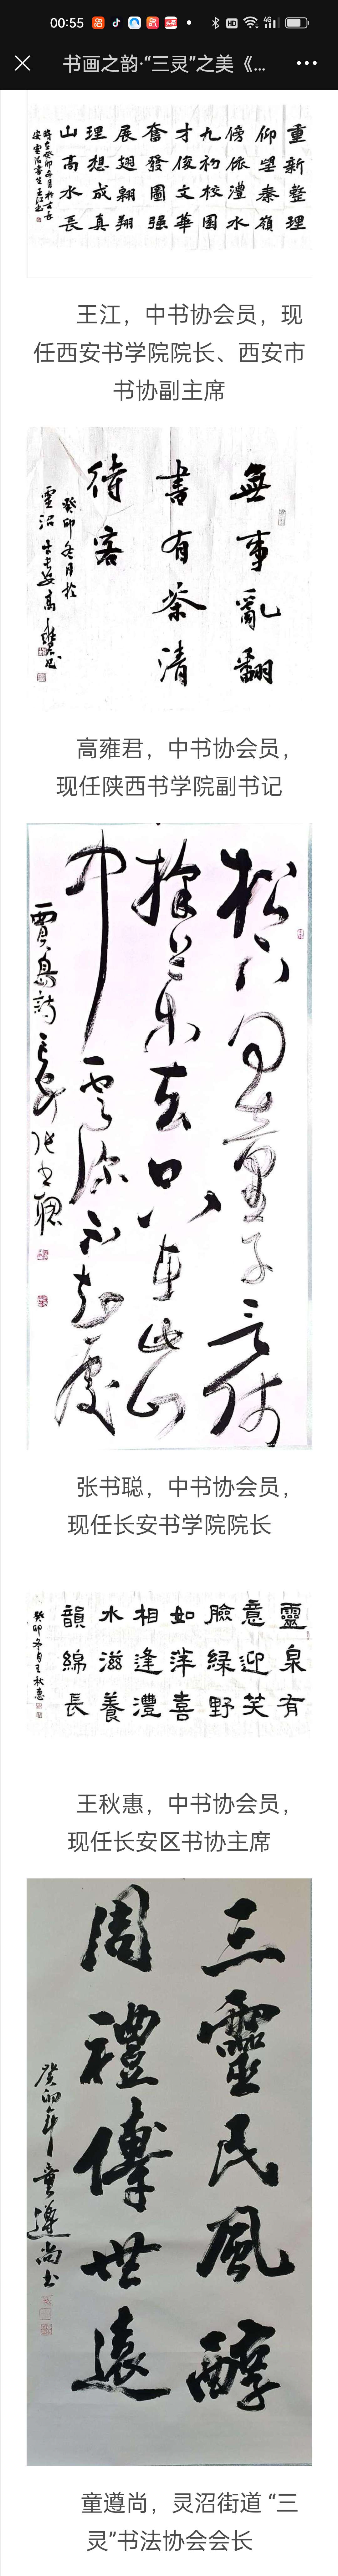 00:55
HD
4G
书画之韵·“三灵”之美《...
重新整理
仰望秦嶺
傍依灃水
九初校園
才俊文華
奮發圖强
展翅翱翔
理想成真
山高水長
王江，中书协会员，现
任西安书学院院长、西安市
书协副主席
無事亂翻
書有茶清
待客
癸卯冬月於
靈沼
高雍君，中书协会员，
现任陕西书学院副书记
松下问童子言师
採药去只在此山
中雲深不知處
賈島詩
张书聪，中书协会员，
现任长安书学院院长
靈泉有
意迎笑
臉緑野
如洋喜
相逢灃
水滋養
韻綿長
癸卯冬月王秋惠
王秋惠，中书协会员，
现任长安区书协主席
三靈民風醇
周禮傳世遠
癸卯年童遵尚书
童遵尚，灵沼街道 “三
灵”书法协会会长